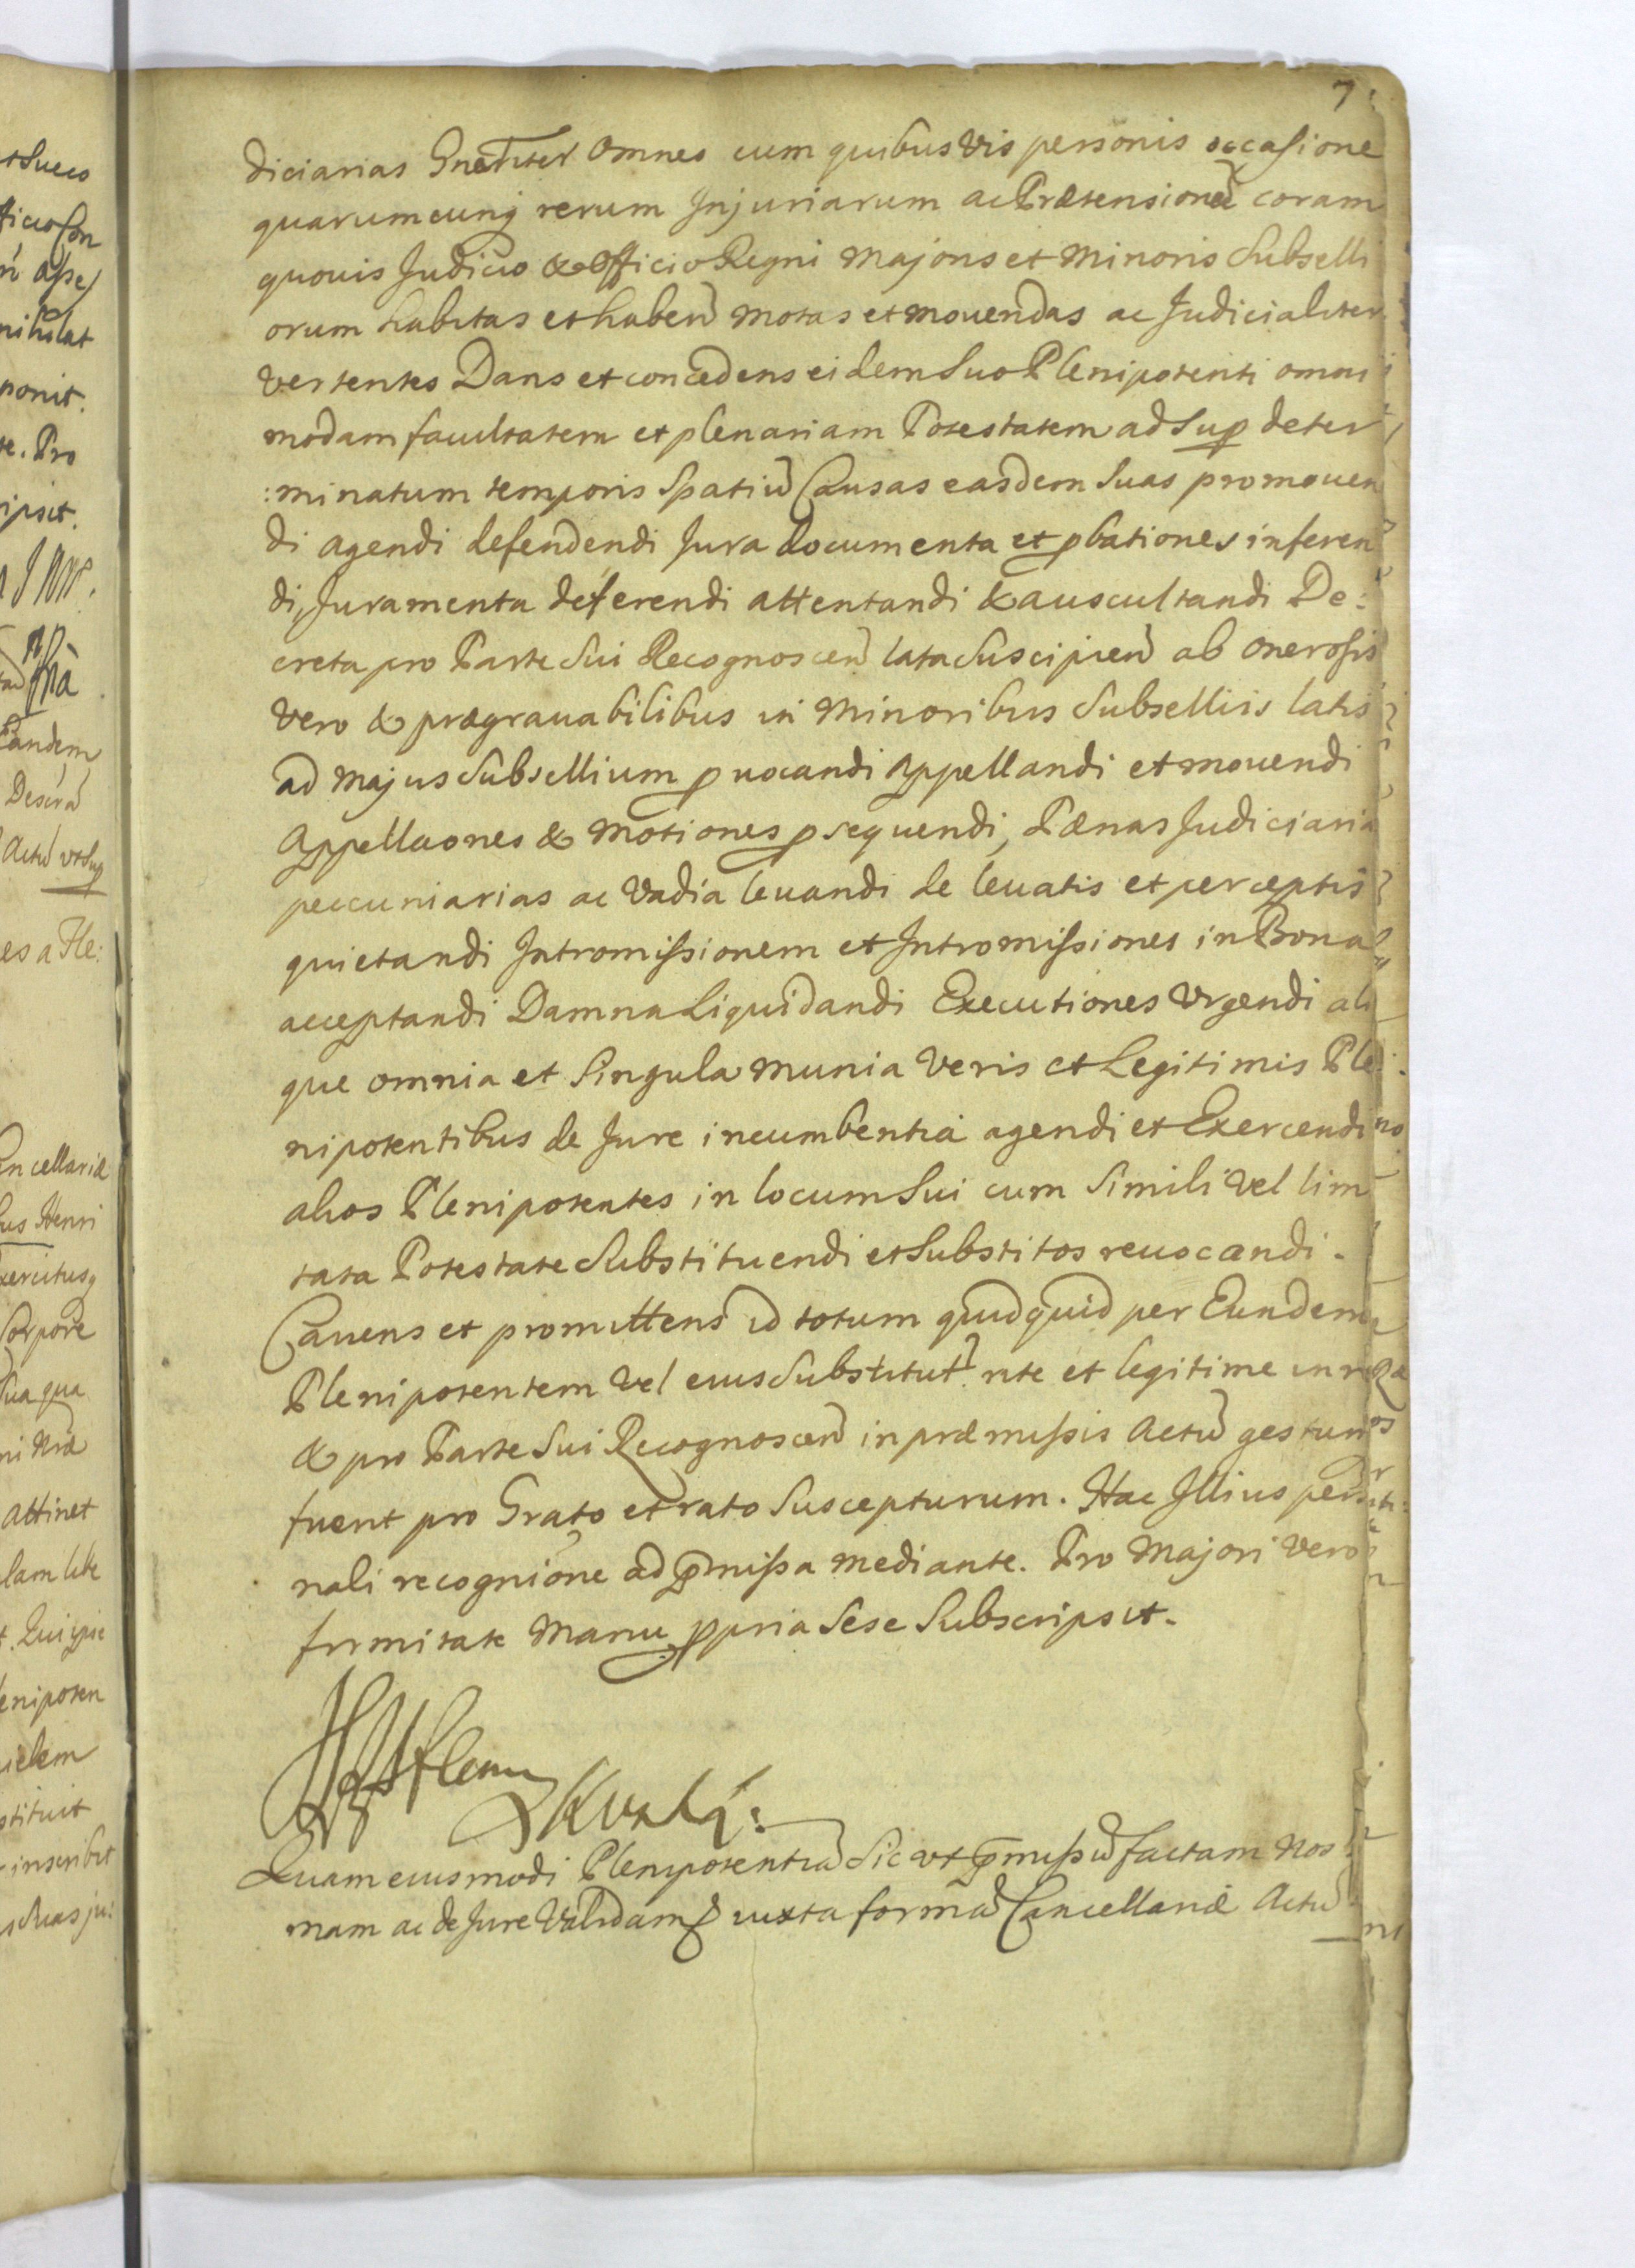 7
diciarias Gnaliter omnes cum quibusvis personis occasione
quarumcunq rerum Injuriarum ac Prætensionũ coram
quouis Judicio & Officio Regni Majoris et Minoris Subselli
orum habitas et habend motas et mouendas ac Judicialiter
vertentes Dans et concedens eidem Suo Plenipotenti omni
modam facultatem et plenariam Potestatem ad Sup deter
:minatum temporis Spatiũ Causas easdem Suas promouen
di agendi defendendi Jura documenta et pbationes inferen
di, Juramenta deferendi attentandi & auscultandi De:
creta pro Parte Sui Recognoscen lata Suscipien ab onerosis
vero & prægrauabilibus in Minoribus Subselliis latis
ad Majus Subsellium puocandi Appellandi et mouendi
Appellaones & Motiones psequendi, Pænas Judiciaria
peccuniarias ac Vadia leuandi de leuatis et perceptis
quietandi Intromissionem et Intromissiones in Bona
acceptandi Damna Liquidandi Executiones Vrgendi ali
que omnia et Singula munia veris et Legitimis Ple
nipotentibus de Jure incumbentia agendi et Exercendi
alios Plenipotentes in locum Sui cum Simili vel lim
tata Potestate Substituendi et Substitos reuocandi.
Cauens et promittens id totum quidquid per Eundem
Plenipotentem vel eius Substitut rite et legitime in r
& pro Parte Sui Recognoscen in præmissis Actũ gestum
fuerit pro Grato et rato Suscepturum. Hac Illius perso
nali recognione ad pmissa mediante. Pro Majori vero
firmitate Manu ppria Sese Subscripsit.
Quam eiusmodi Plenipotentiã Sic vt pmissũ factam nos
mam ac de Jure Validam iuxta formã Cancellariæ Actũ